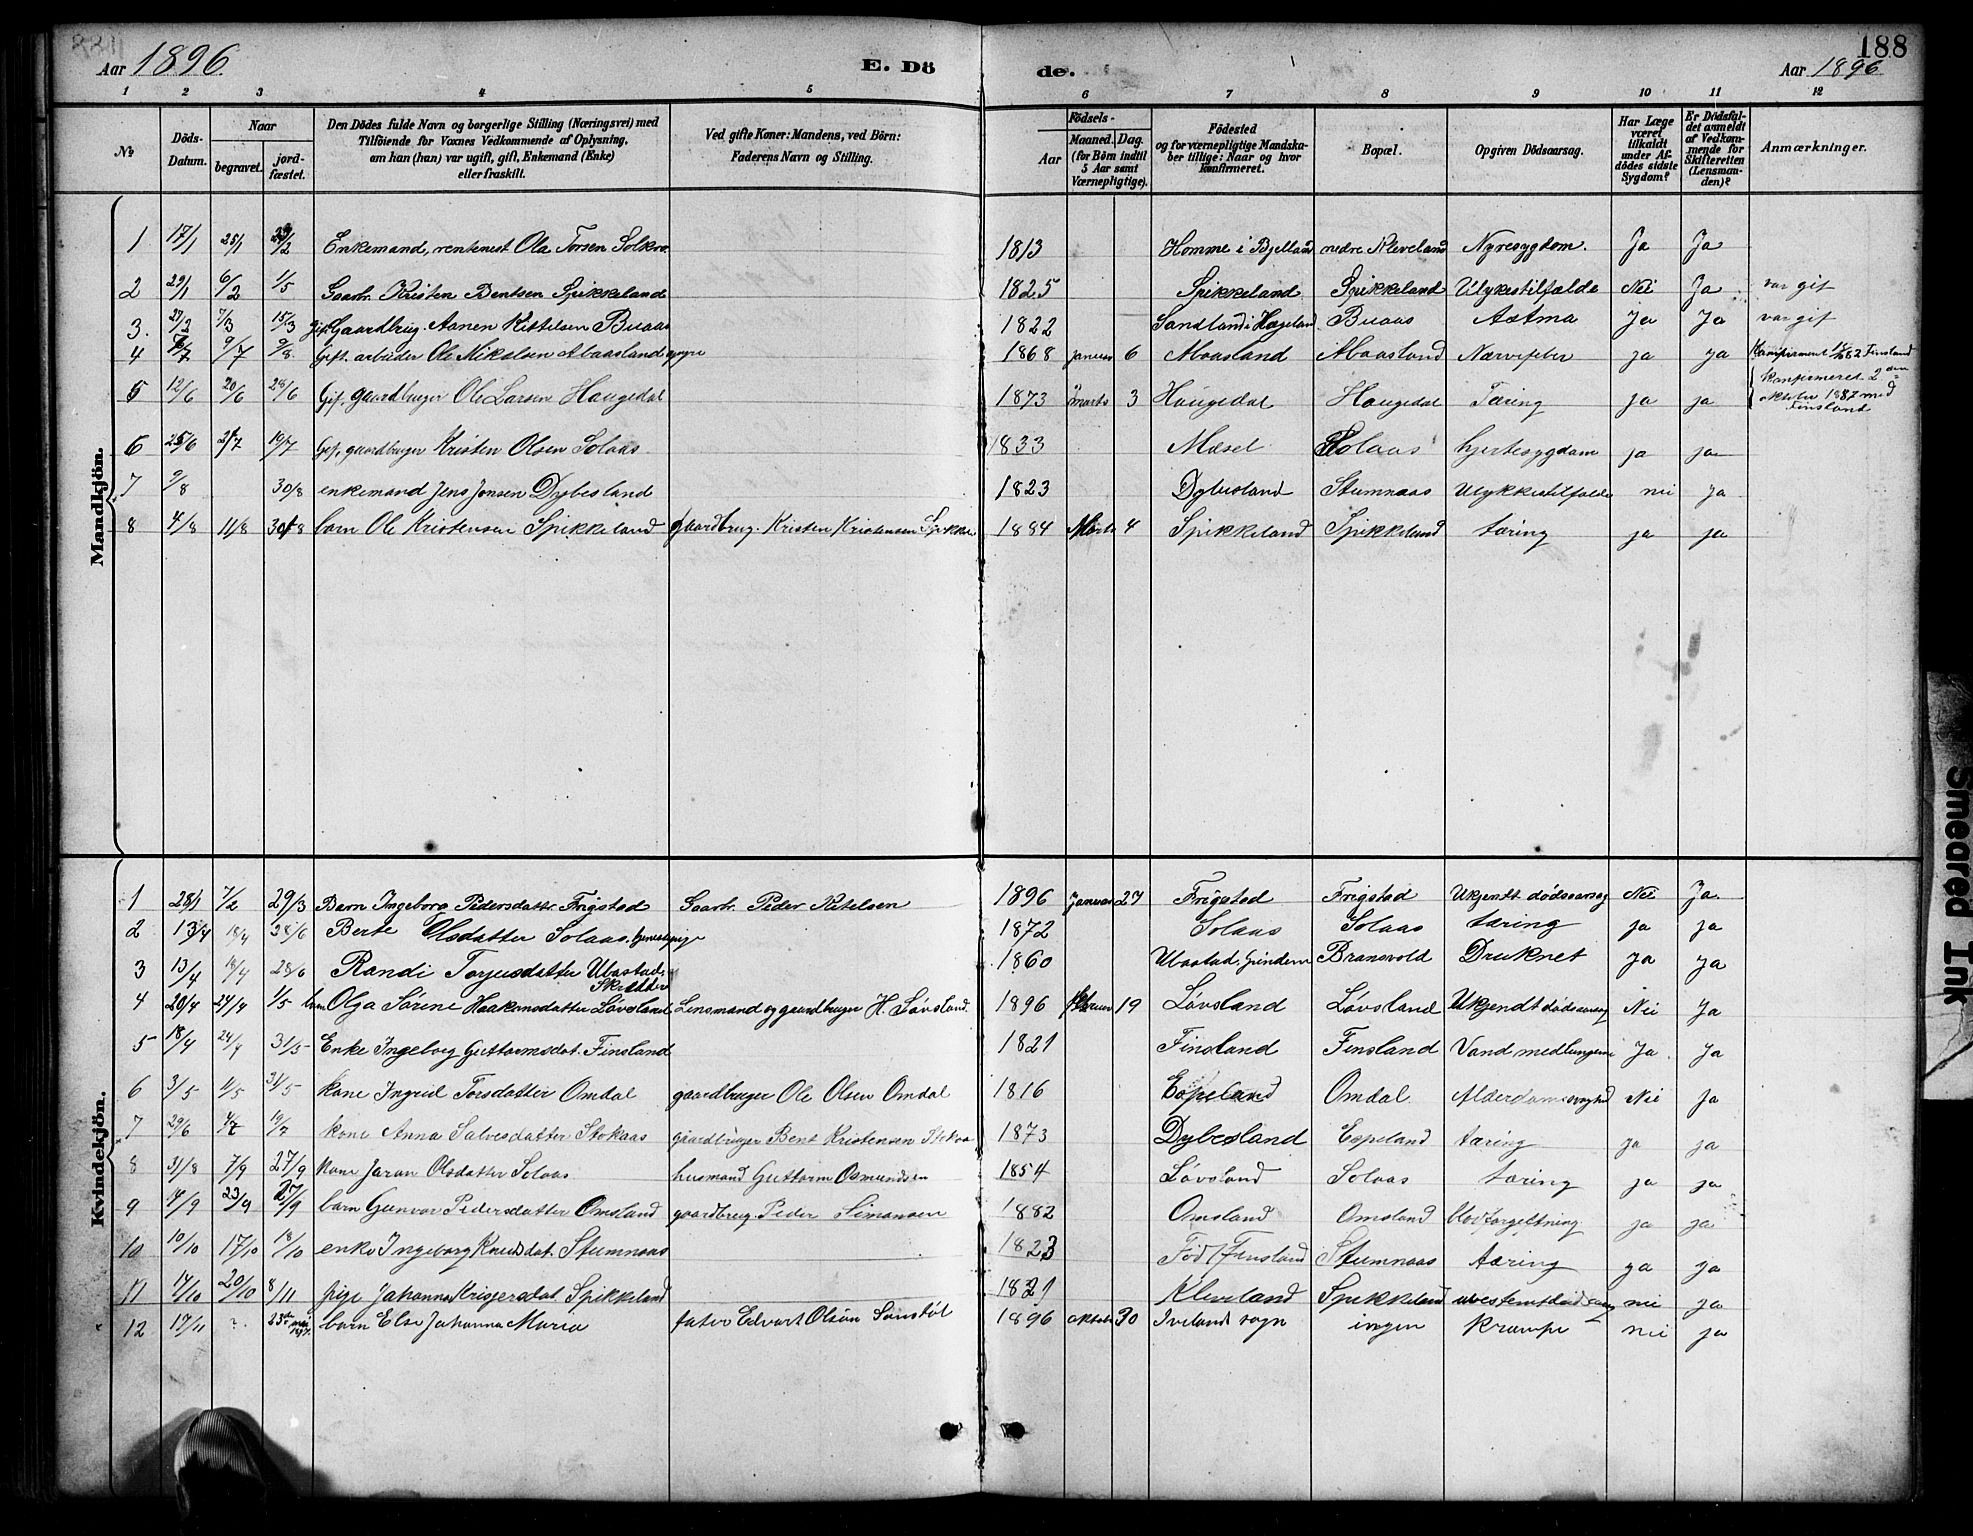 Aar 1896. E. Dö de. Aar 1896
188
1 2 3 4 5 6 7 8 9 10 11 12
№ Döds-Datum. Naar begravet. jordfæstet. Den Dödes fulde Navn og borgerlige Stilling (Næringsvei) med Tilföiende for Voxnes Vedkommende af Oplysning, om han (hun) var ugift, gift, Enkemand (Enke) eller fraskilt. Ved gifte Koner: Mandens, ved Börn: Faderens Navn og Stilling. Födsels- Aar Maaned. Dag. (for Börn indtil 5 Aar samt Værnepligtige). Födested og for værnepligtige Mandskaber tillige: Naar og hvor konfirmeret. Bopæl. Opgiven Dödsaarsag. Har Læge været tilkaldt under Afdödes sidste Sygdom? Er Dödsfaldet anmeldt af Vedkommende for Skifteretten (Lensmanden)? Anmærkninger.
Mandkjön.
1 17/1 25/1 Enkemand, Ola Torsen 1813 Homme i Bjelland nedre Kleveland Nyresygdom. Ja Ja
2 29/1 6/2 1/5 Gaarbr. Kristen Bentsen Spikkeland 1825 Spikkeland Spikkeland Ulykestilfælde Nei Ja var gift
3. 27/2 7/3 15/3 Gift Gaardbrug. Aanen Kittelsen Buaas 1822 Sandland i Hægeland Buaas Astma Ja Ja var gift
4 9/7 9/8 Gift. arbeider Ole Nikolsen Abaasland 1868 januar 6 Abaasland Abaasland Nærvefeber ja ja Konfirmeret 1882 Finsland
5 12/6 20/6 28/6 Gift, gaardbruger Ole Larsen Haugedal 1873 marts 3 Haugedal Haugedal Tæring ja ja konfirmeret 2den oktober 1887 med Finsland
6 25/6 2/7 19/7 Gift, gaardbruger Kristen Olsen Solaas 1833 Mæsel Solaas hjertesygdom ja ja
7 9/8 30/8 enkemand Jens Jonsen Dybesland 1823 Dybesland Stumnaas Ulykkestilfælde nei ja
8 4/8 11/8 30/8 barn Ole Kristensen Spikkeland gaardbrug. Kristen Kristensen Spikkel. 1884 Marts 4 Spikkeland Spikkeland tæring ja ja
Kvindekjön.
1 28/1 7/2 29/3 Barn Ingebora Pedersdattr. Frigstad Gaarbr. Peder Ketelsen 1896 Januar 27 Frigstad Frigstad Ukjendt dødsaarsag Nei Ja
2 13/4 18/4 28/6 Berte Olsdatter Solaas. 1872 Solaas Solaas tæring ja ja
3 13/4 18/4 28/6 Randi Torjusdatter Ubostad, 1860 Ubostad, Grindem Bransvold Druknet Ja Ja
4 20/4 24/4 1/5 barn Olga Sörine Haakonsdatter Løvsland Lensmand og gaardbruger H. Løvsland. 1896 februar 19 Løvsland Løvsland Ukjendt dødsaarsag Nei Ja
5 18/4 24/4 31/5 Enke Ingeborg Guttormsdat. Finsland 1821 Finsland Finsland Vand med lungerne Ja Ja
6 3/5 11/5 31/5 kone Ingrid Torsdatter Omdal gaardbruger Ole Olsen Omdal 1816 Espeland Omdal Alderdomssvaghed Nei Ja
7 29/6 4/7 19/7 kone Anna Salvesdatter Stokaas gaardbruger Bent Kristensen 1873 Dybesland Espeland tæring ja ja
8 31/8 7/9 27/9 kone Jaran Olsdatter Solaas husmand Guttorm Osmundsen 1854 Løvsland Solaas tæring ja ja
9 14/9 23/9 27/9 barn Gunvor Pedersdatter Omsland gaardbrug. Peder Simonsen 1882 Omsland Omsland blodforgiftning ja ja
10 10/10 17/10 18/10 enke Ingeborg Knudsdat. Stumnaas 1823 Fød i Finsland Stumnaas tæring ja ja
11 14/10 20/10 8/11 pige Johanna Krigersdat. Spikkeland 1821 Kleveland Spikkeland nei ja
12 17/11 ? 23de mai 1897. barn Else Johanna Maria fater Edvart Olson 1896 oktober 30 Ivelands sogn ingen Krampe nei ja
Smeared Ink